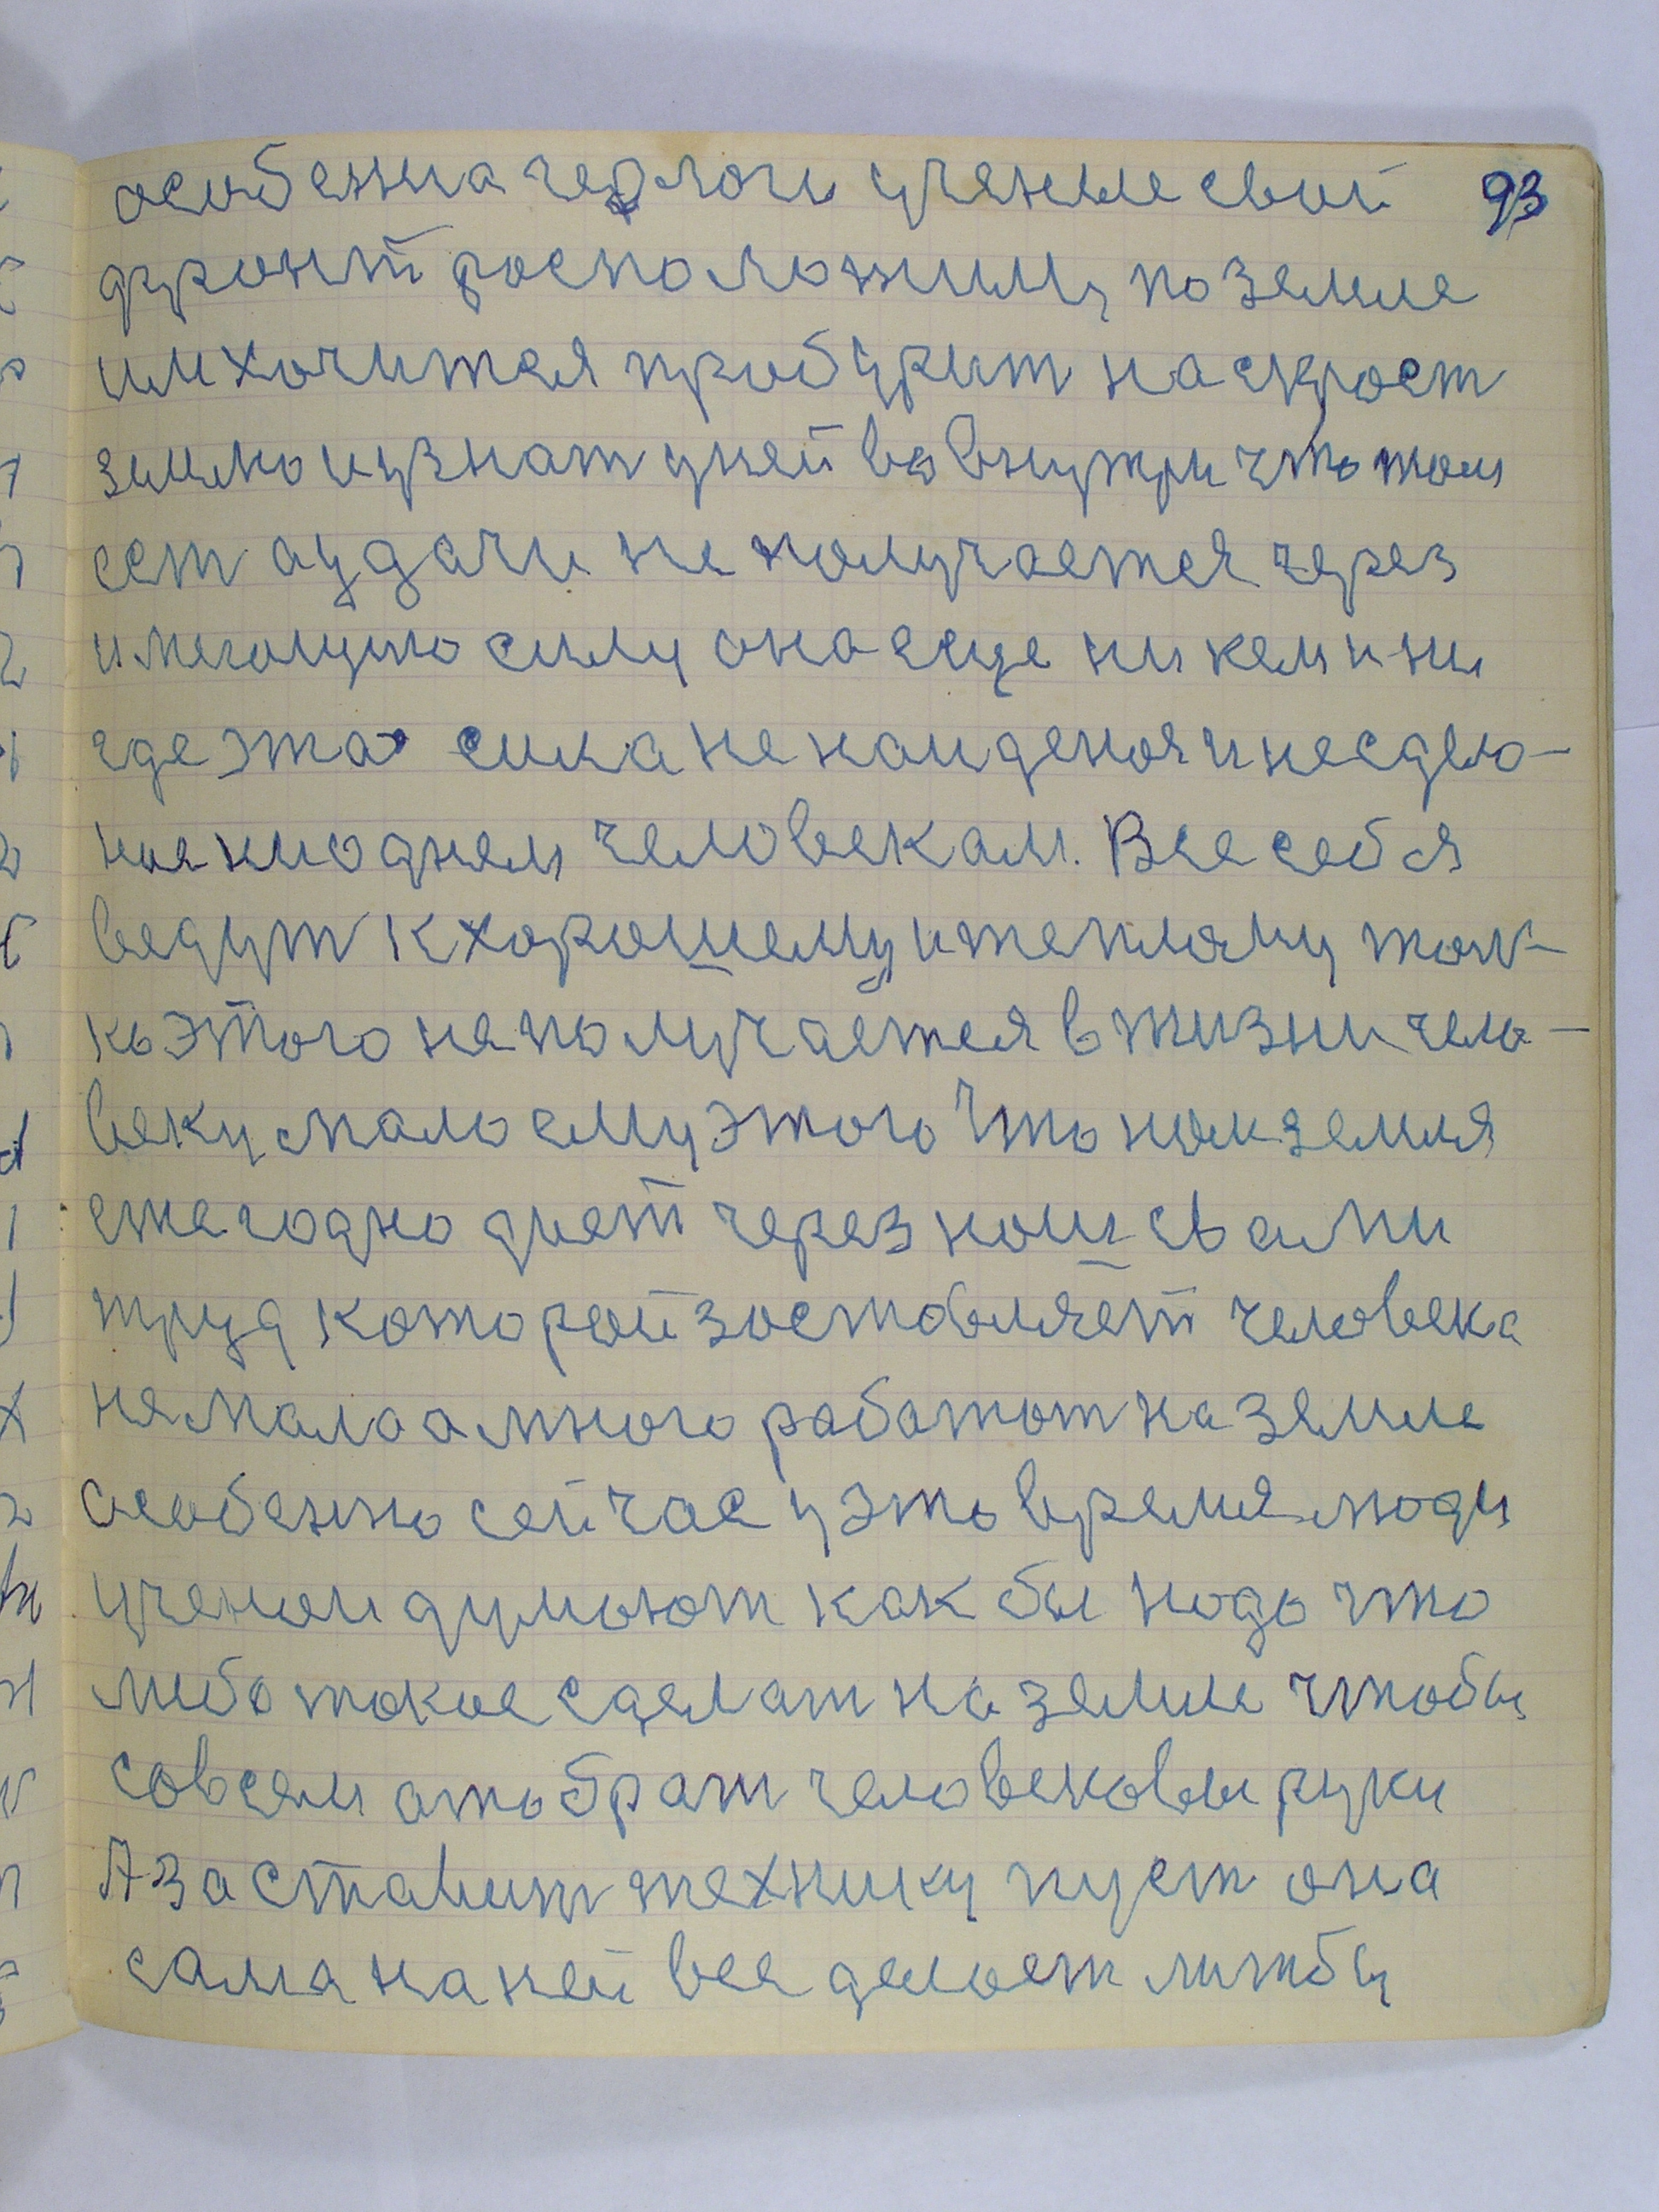 особенна геологи ученые свои 93
фронт росположили по земле
им хочится пробурит наскрост
зимлю и узнат у ней вовнутри что там
ест а удачи не получается через
имеющую силу она еще ни кем и ни
где эта сила не найденоя и не сдело-
ное ниоднем человекам. Все себя
ведут к хорошему и теплому толь-
ко этого не получается в жизни чело-
веку мало ему этого что нам земля
ежегодно дает через наш с вами
труд которой зоставляет человека
не мало а много работат на земле
особенно сейчас у это время люди
ученои думают как бы надо что
либо такое сделат на земле чтобы
совсем отобрат человековы руки
А заставит технику пуст она
сама на ней все делает литбы